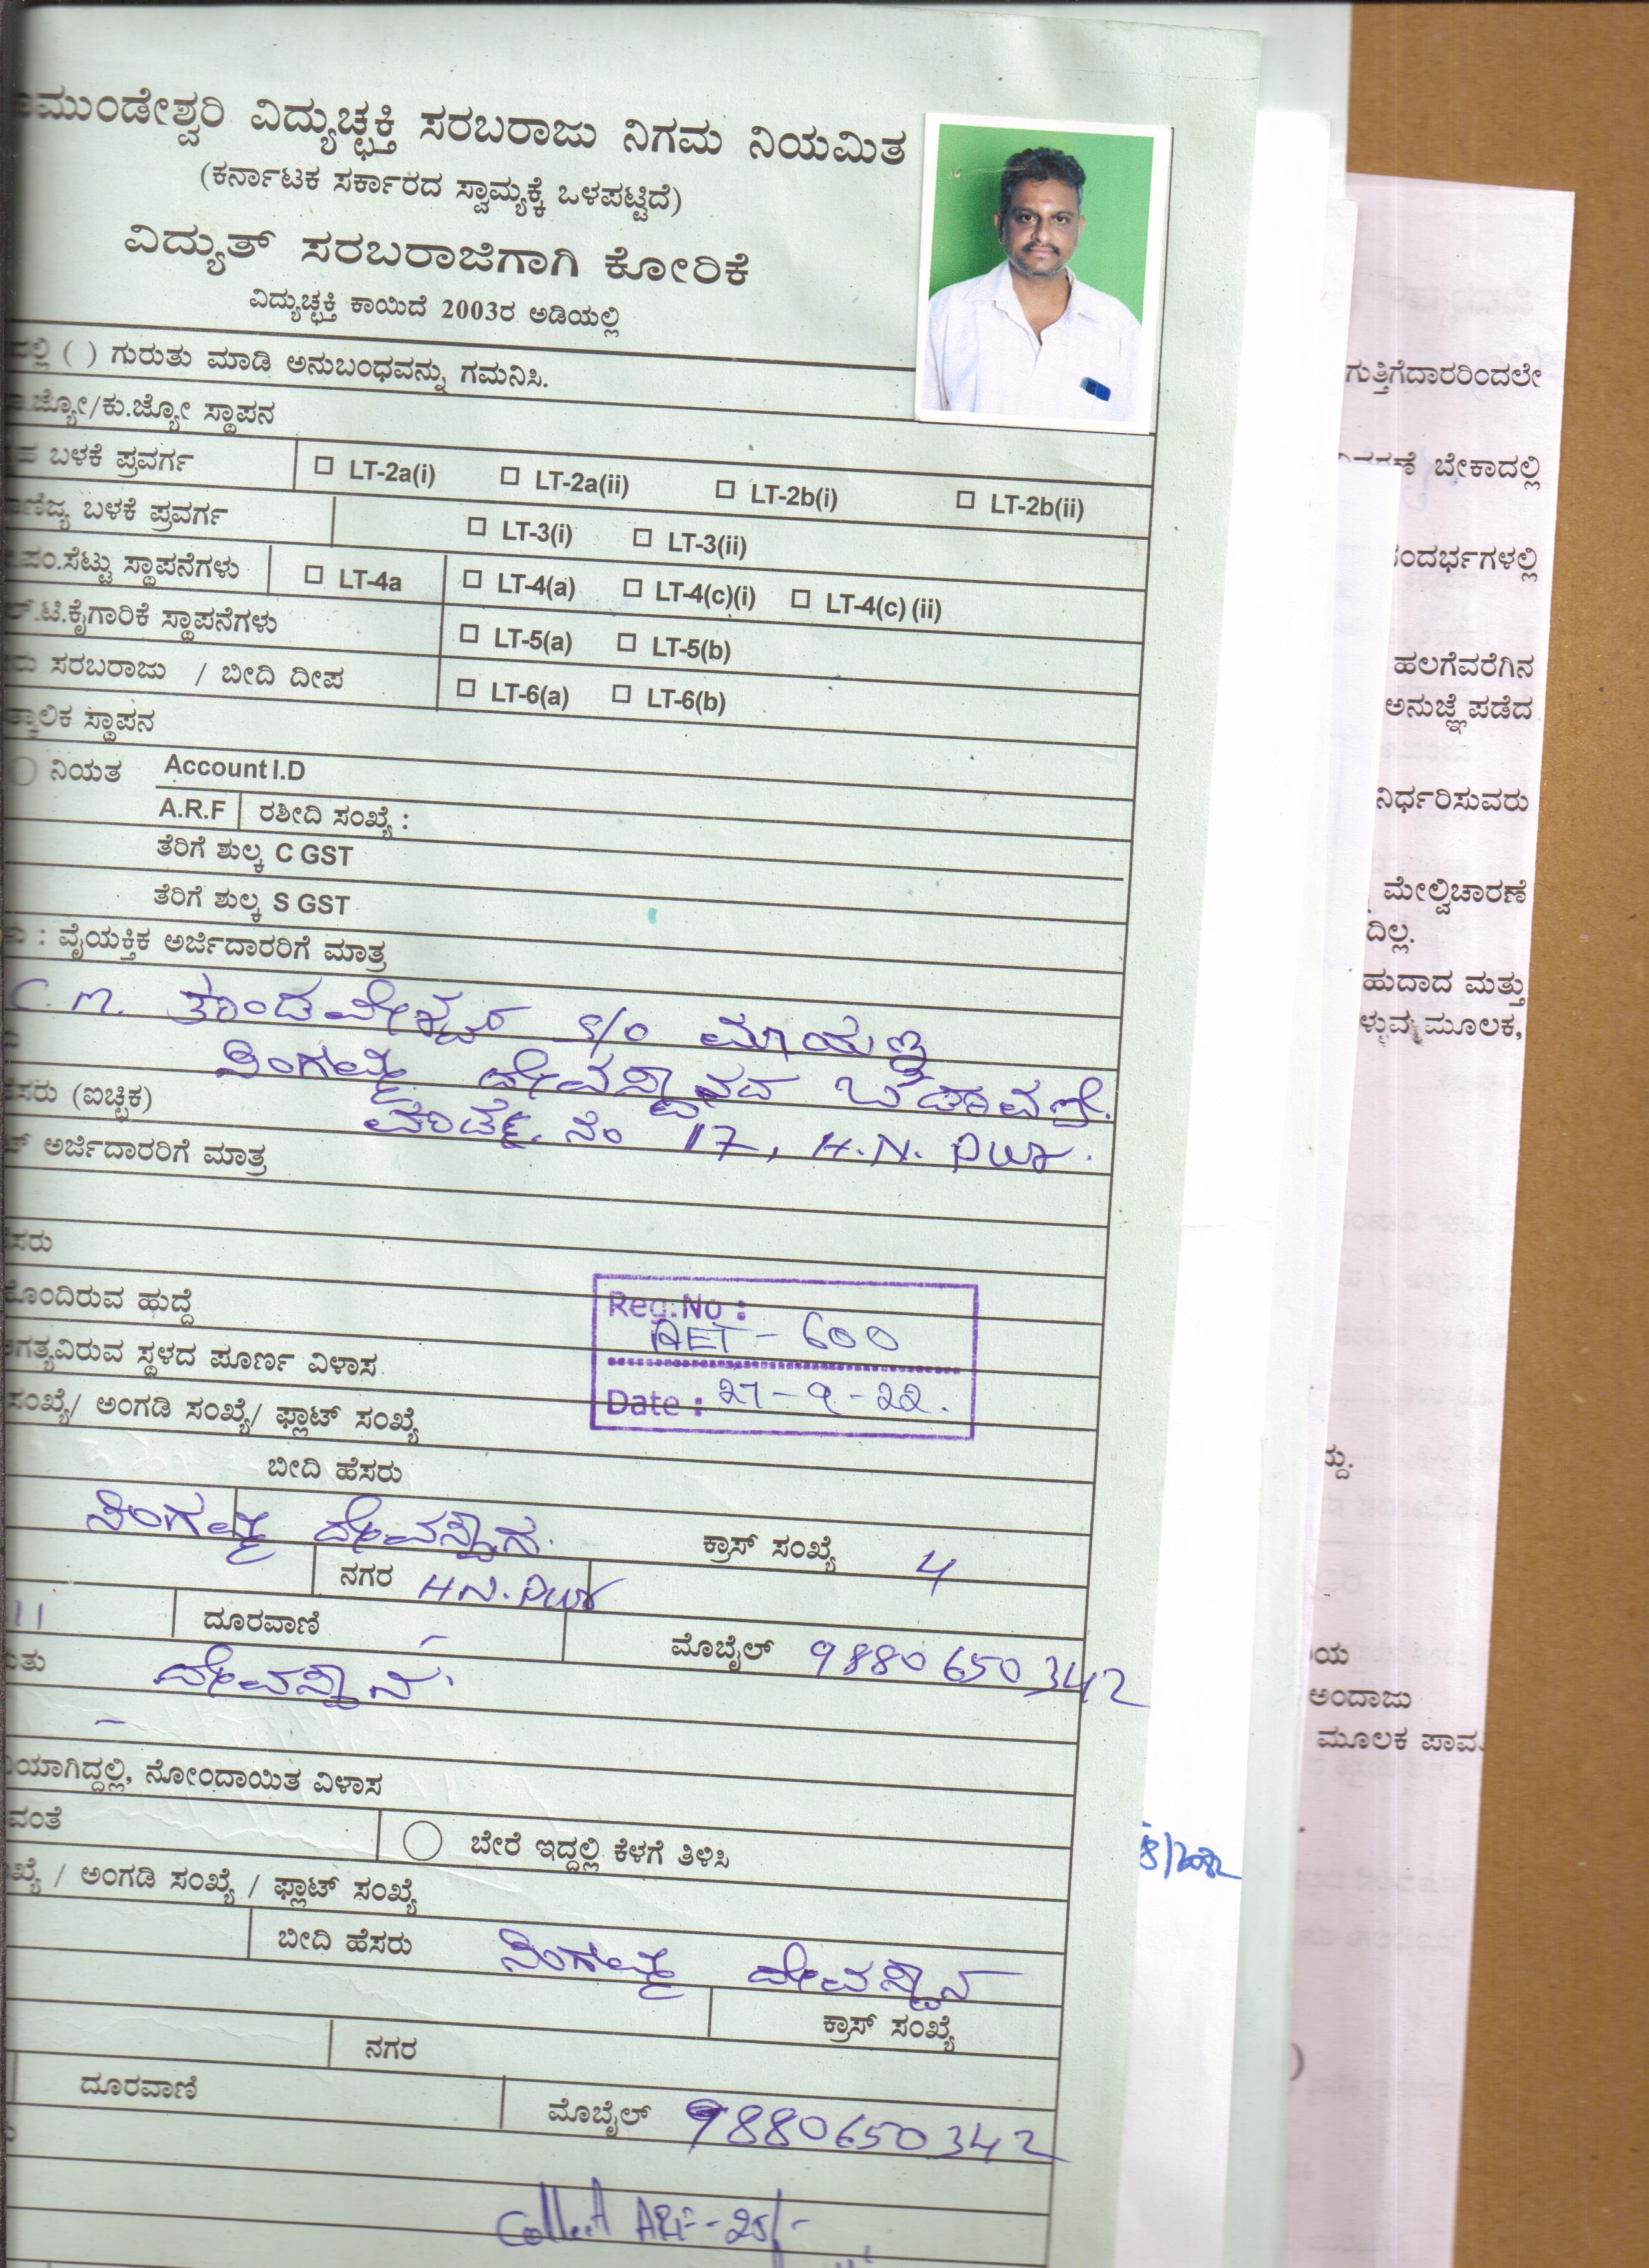 ಮುಂಡೇಶ್ವರಿ ವಿದ್ಯುಚ್ಛಕ್ತಿ ಸರಬರಾಜು ನಿಗಮ ನಿಯಮಿತ
(ಕರ್ನಾಟಕ ಸರ್ಕಾರದ ಸ್ವಾಮ್ಯಕ್ಕೆ ಒಳಪಟ್ಟಿದೆ)
ವಿದ್ಯುತ್ ಸರಬರಾಜಿಗಾಗಿ ಕೋರಿಕೆ
ವಿದ್ಯುಚ್ಛಕ್ತಿ ಕಾಯಿದೆ 2003ರ ಅಡಿಯಲ್ಲಿ
ದಲ್ಲಿ ( ) ಗುರುತು ಮಾಡಿ ಅನುಬಂಧವನ್ನು ಗಮನಿಸಿ.
ಜ್ಯೋ/ಕು.ಜ್ಯೋ ಸ್ಥಾಪನ
ಬಳಕೆ ಪ್ರವರ್ಗ □ LT-2a(i) □ LT-2a(ii) □ LT-2b(i) □ LT-2b(ii)
ಬಳಕೆ ಪ್ರವರ್ಗ □ LT-3(i) □ LT-3(ii)
ಪಂ.ಸೆಟ್ಟು ಸ್ಥಾಪನೆಗಳು □ LT-4a □ LT-4(a) □ LT-4(c)(i) □ LT-4(c) (ii)
ಟಿ.ಕೈಗಾರಿಕೆ ಸ್ಥಾಪನೆಗಳು □ LT-5(a) □ LT-5(b)
ಸರಬರಾಜು / ಬೀದಿ ದೀಪ □ LT-6(a) □ LT-6(b)
ಸ್ಥಾಪನ
ನಿಯತ Account I.D
A.R.F ರಶೀದಿ ಸಂಖ್ಯೆ :
ತೆರಿಗೆ ಶುಲ್ಕ C GST
ತೆರಿಗೆ ಶುಲ್ಕ S GST
: ವೈಯಕ್ತಿಕ ಅರ್ಜಿದಾರರಿಗೆ ಮಾತ್ರ
C.M. s/o ಮಾಯಣ್ಣ
ದೇವಸ್ಥಾನದ
ಹೆಸರು (ಐಚ್ಛಿಕ)
ನೆಂ 17, H.N. Pura.
ಅರ್ಜಿದಾರರಿಗೆ ಮಾತ್ರ
ಸರು
ಹೊಂದಿರುವ ಹುದ್ದೆ
Reg.No :
AET - 600
ಅಗತ್ಯವಿರುವ ಸ್ಥಳದ ಪೂರ್ಣ ವಿಳಾಸ
Date : 27-9-22.
ಸಂಖ್ಯೆ/ ಅಂಗಡಿ ಸಂಖ್ಯೆ/ ಫ್ಲಾಟ್ ಸಂಖ್ಯೆ
ಬೀದಿ ಹೆಸರು
ದೇವಸ್ಥಾನ. ಕ್ರಾಸ್ ಸಂಖ್ಯೆ 4
ನಗರ H.N. Pura
11 ದೂರವಾಣಿ - ಮೊಬೈಲ್ 9880650342
ದೇವಸ್ಥಾನ
ಯಾಗಿದ್ದಲ್ಲಿ, ನೋಂದಾಯಿತ ವಿಳಾಸ
ವಂತೆ ಬೇರೆ ಇದ್ದಲ್ಲಿ ಕೆಳಗೆ ತಿಳಿಸಿ
ಖ್ಯೆ / ಅಂಗಡಿ ಸಂಖ್ಯೆ / ಫ್ಲಾಟ್ ಸಂಖ್ಯೆ
ಬೀದಿ ಹೆಸರು ದೇವಸ್ಥಾನ
ಕ್ರಾಸ್ ಸಂಖ್ಯೆ
ನಗರ
ದೂರವಾಣಿ ಮೊಬೈಲ್ 9880650342
Collect ARF - 25/-
ಗುತ್ತಿಗೆದಾರರಿಂದಲೇ
ಬೇಕಾದಲ್ಲಿ
ಸಂದರ್ಭಗಳಲ್ಲಿ
ಹಲಗೆವರೆಗಿನ
ಅನುಜ್ಞೆ ಪಡೆದ
ನಿರ್ಧರಿಸುವರು
ಮೇಲ್ವಿಚಾರಣೆ
ದಿಲ್ಲ.
ಹುದಾದ ಮತ್ತು
ಳ್ಳುವ ಮೂಲಕ,
ದ್ದು.
ಯ
ಅಂದಾಜು
ಮೂಲಕ ಪಾವ